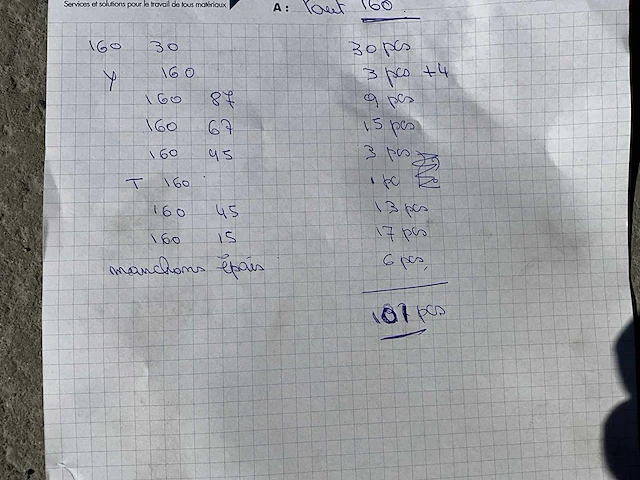 Services et solutions pour le travail de tous matériaux
A : Tout 160.
160 30 30 pcs
Y 160 3 pcs +4
160 87 9 pcs
160 67 15 pcs
160 45 3 pcs
T 160 1 pc
160 45 13 pcs
160 15 17 pcs
manchons épais 6 pcs.
101 pcs